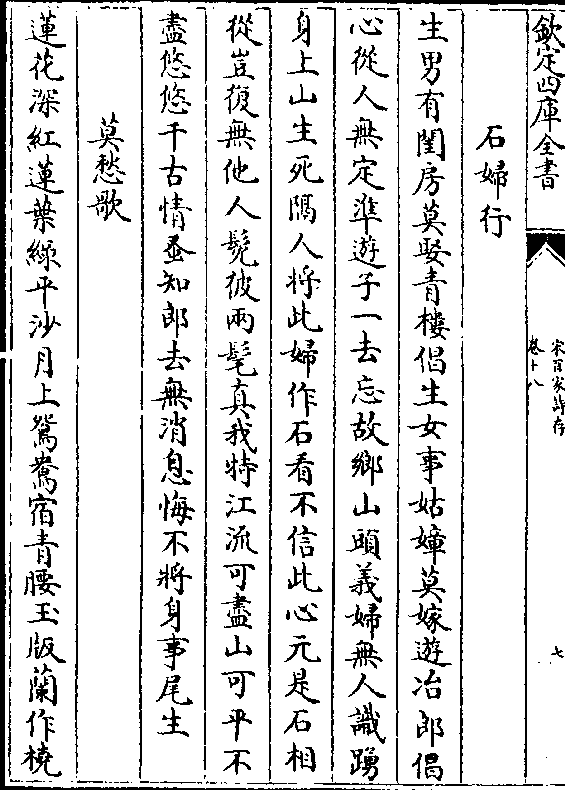 欽定四庫全書
宋百家詩存
卷十八
七
石婦行
生男有閨房莫娶青樓倡生女事姑嫜莫嫁遊冶郎倡
心從人無定準遊子一去忘故鄉山頭義婦無人識踴
身上山生死隔人將此婦作石看不信此心元是石相
從豈復無他人髡彼兩髦真我特江流可盡山可平不
盡悠悠千古情蚤知郎去無消息悔不將身事尾生
莫愁歌
蓮花深紅蓮葉綠平沙月上鴛鴦宿青腰玉版蘭作橈